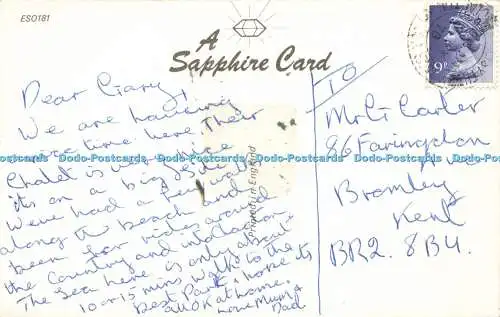 ESO181
A
Sapphire Card
9P
Dear Gary,
We are having
nice time here. Their
Chalet is very nice
its on a big site
We've had a few walks
along the Beach and
been for rides around
the Country and into
The Sea here is only about
10 or 15 mins walk to the
best Part, hope its
all OK at home.
Love Mum &
Dad
Printed in England
TO
Mr G Carter
86 Faringdon
Ave
Bromley
Kent
BR2. 8BU.
Dodo-Postcards Dodo-Postcards Dodo-Postcards Dodo-Postcards Dodo-Postcards